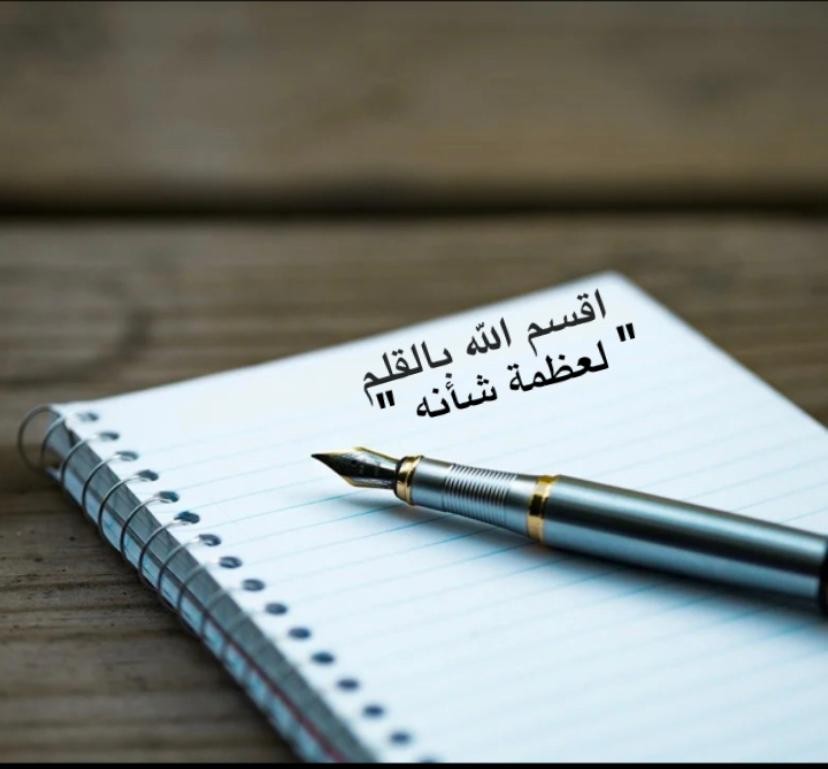 اقسم الله بالقلم
" لعظمة شأنه "